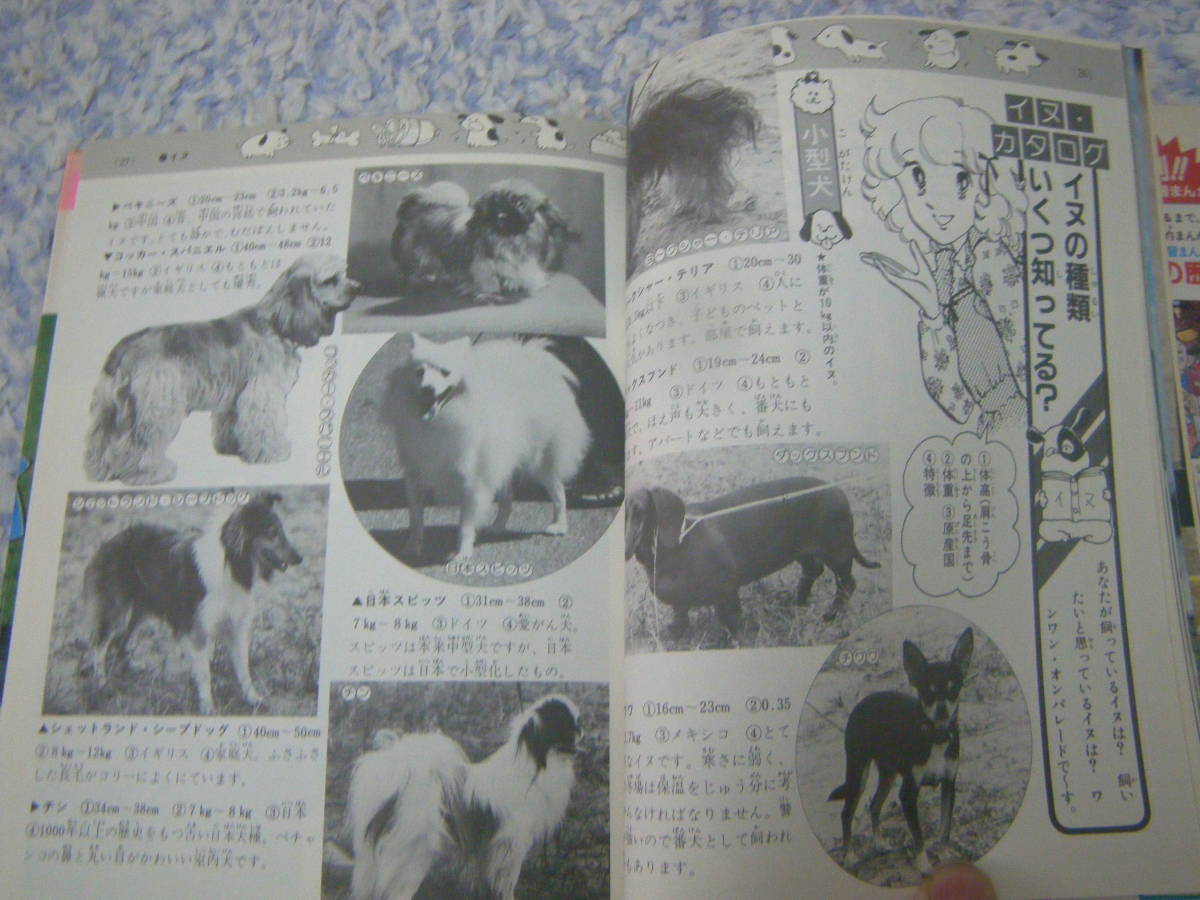 (26)
イヌ・
カタログ
イヌの種類
いくつ知ってる?
あなたが飼っているイヌは? 飼い
たいと思っているイヌは? ワ
ンワン・オンパレードで〜す。
イヌ
①体高(肩こう骨
の上から足先まで)
②体重 ③原産国
④特徴
小型犬
こがたけん
★体重が10kg以内のイヌ。
ークシャー・テリア
ークシャー・テリア ①20cm〜30
kg以下 ③イギリス ④人に
よくなつき、子どものペットと
があります。部屋で飼えます。
ックスフンド ①19cm〜24cm ②
11kg ③ドイツ ④もともと
で、ほえ声も大きく、番犬にも
す。アパートなどでも飼えます。
ダックスフンド
チワワ
ワ ①16cm〜23cm ②0.35
kg ③メキシコ ④とて
なイヌです。寒さに弱く、
場は保温をじゅう分に考
なければなりません。警
強いので番犬として飼われ
もあります。
(27) ●イヌ
▶ペキニーズ ①20cm〜23cm ②3.2kg〜6.5
kg ③中国 ④昔、中国の宮廷で飼われていた
イヌです。とても静かで、むだぼえしません。
▼コッカー・スパニエル ①40cm〜48cm ②12
kg〜15kg ③イギリス ④もともとは
猟犬ですが家庭犬としても優秀。
ペキニーズ
コッカー・スパニエル
日本スピッツ
シェットランド・シープドッグ
▲日本スピッツ ①31cm〜38cm ②
7kg〜8kg ③ドイツ ④愛がん犬。
スピッツは本来中型犬ですが、日本
スピッツは日本で小型化したもの。
チン
▲シェットランド・シープドッグ ①40cm〜50cm
②8kg〜12kg ③イギリス ④家庭犬。ふさふさ
した長毛がコリーによくにています。
▶チン ①34cm〜38cm ②7kg〜8kg ③日本
④1000年以上の歴史をもつ古い日本犬種。ペチャ
ンコの鼻と丸い目がかわいい室内犬です。